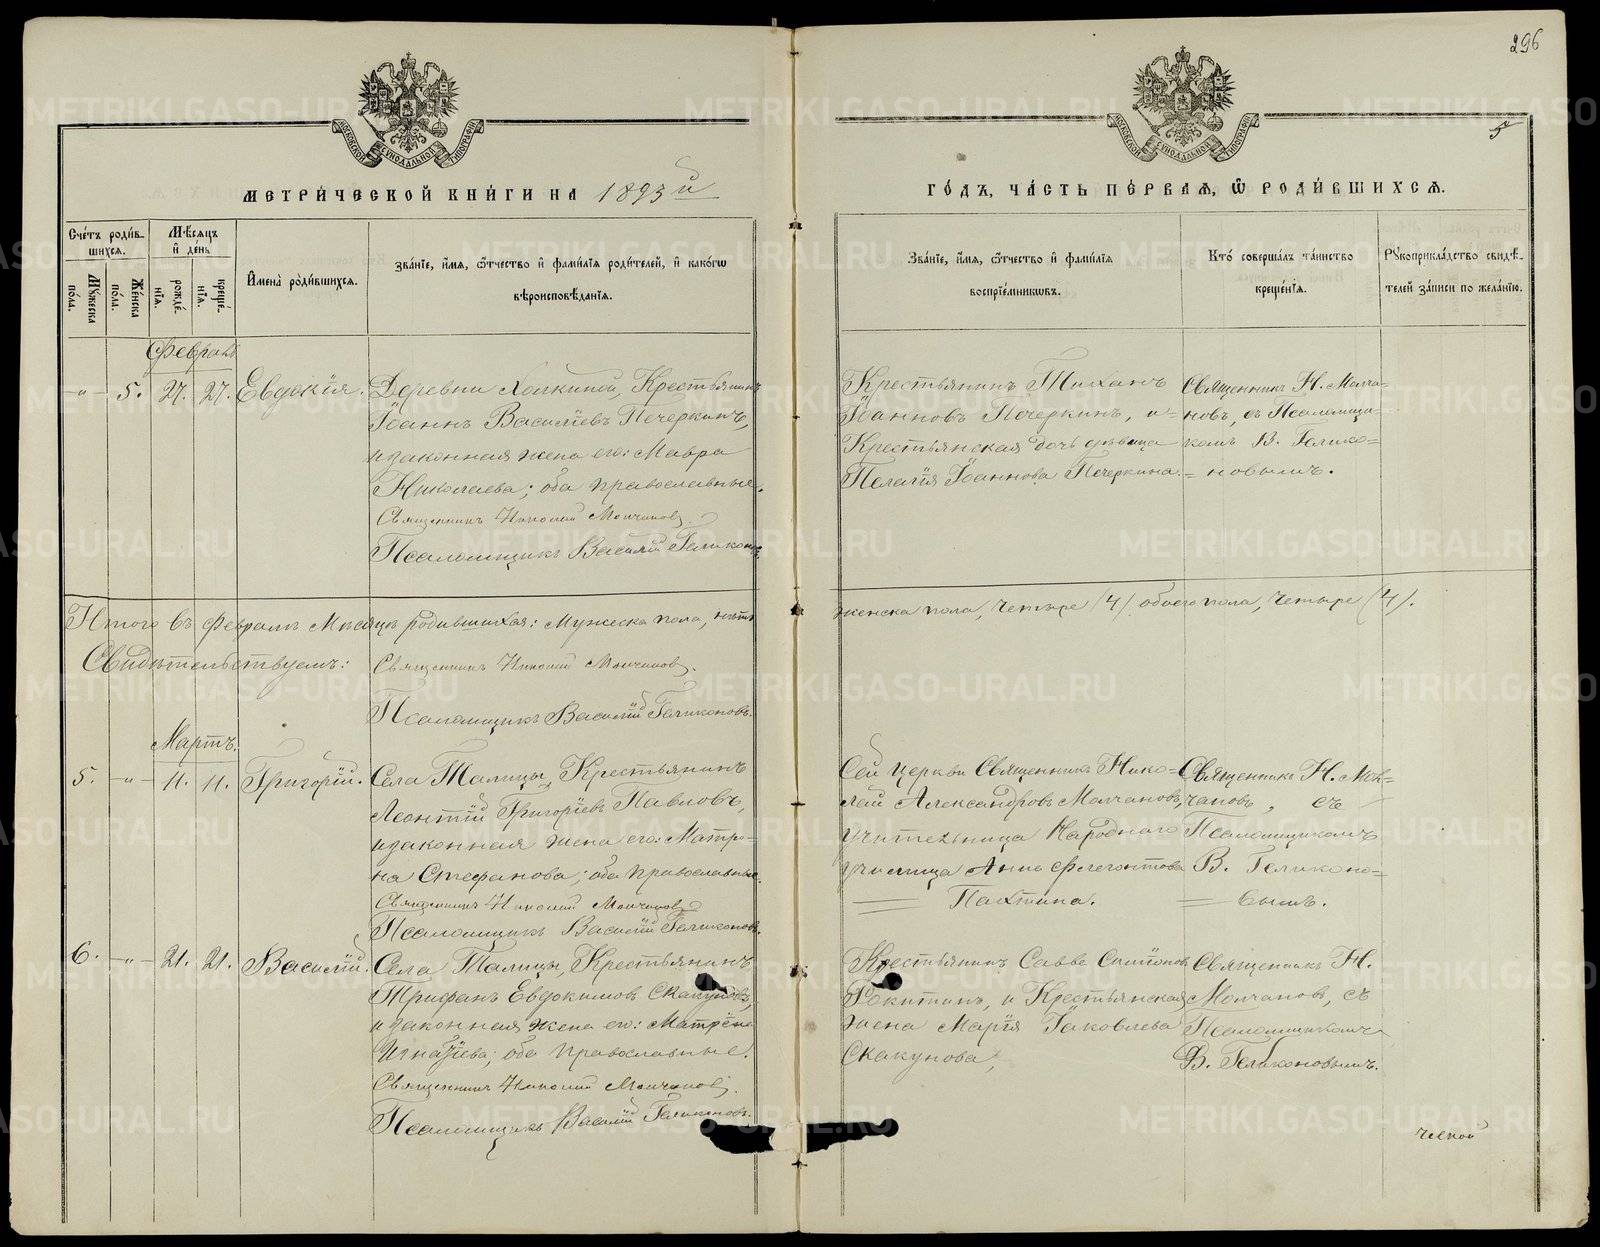 296
5
МОСКОВСКОЙ СѴНОДАЛЬНОЙ ТИПОГРАФІИ
МОСКОВСКОЙ СѴНОДАЛЬНОЙ ТИПОГРАФІИ
МЕТРИ́ЧЕСКОЙ КНИ́ГИ НА 1893й
ГО́ДЪ, ЧА́СТЬ ПЕ́РВАѦ, Ѡ҆ РОДИ́ВШИХСѦ.
Сче́тъ роди́в-
шихсѧ.
Мꙋжеска
по́ла.
Же́нска
по́ла.
Мѣ́сѧцъ
и҆ де́нь
рожде́-
нїѧ.
креще́-
нїѧ.
И҆мена̀ роди́вшихсѧ.
Зва́нїе, и҆́мѧ, ѻ҆́тчество и҆ фами́лїѧ роди́телей, и҆ како́гѡ
вѣроисповѣ́данїѧ.
Зва́нїе, и҆́мѧ, ѻ҆́тчество и҆ фами́лїѧ
воспрїе́мникѡвъ.
Кто̀ соверша́лъ та́инство
креще́нїѧ.
Рꙋкоприкла́дство свидѣ́-
телей за́писи по жела́нїю.
Февраль
-„- 5. 27. 27. Евдокія. Деревни Холкиной, Крестьянинъ
Іоаннъ Васильевъ Печеркинъ,
и законная жена его: Мавра
Николаева; оба православные.
Священникъ Николай Молчановъ.
Псаломщикъ Василій Геликоновъ.
Крестьянинъ Тиханъ
Іоанновъ Печеркинъ, и-
Крестьянская дочь дѣвица
Пелагія Іоаннова Печеркина.
Священникъ Н. Молча-
новъ, съ Псаломщи-
комъ В. Гелико-
= новымъ.
Итого въ Февралѣ Мѣсяцѣ родившихся: Мужеска пола, нѣтъ
женска пола, четыре (4). обоего пола, четыре (4).
Свидѣтельствуемъ: Священникъ Николай Молчановъ.
Псаломщикъ Василій Геликоновъ.
Мартъ.
5. -„- 11. 11. Григорій. Села Талицы, Крестьянинъ
Леонтій Григорьевъ Павловъ,
и законная жена его: Матро-
на Стефанова; оба православные.
Священникъ Николай Молчановъ
Псаломщикъ Василій Геликоновъ.
Сей церкви Священникъ Нико-
лай Александровъ Молчановъ,
учительница Народнаго
училища Анна Флегонтова
Пахтина.
Священникъ Н. Мол-
чановъ, съ
Псаломщикомъ
В. Геликоно-
= вымъ.
6. -„- 21. 21. Василій. Села Талицы, Крестьянинъ
Трифанъ Евдокимовъ Скакуновъ,
и законная жена его: Матрёна
Игнатіева; оба православные.
Священникъ Николай Молчановъ.
Псаломщикъ Василій Геликоновъ.
Крестьянинъ Савва Симіоновъ
Рокитинъ, и Крестьянская
жена Марія Іаковлева
Скакунова,
Священникъ Н.
Молчановъ, съ
Псаломщикомъ
В. Геликоновымъ.
METRIKI.GASO-URAL.RU